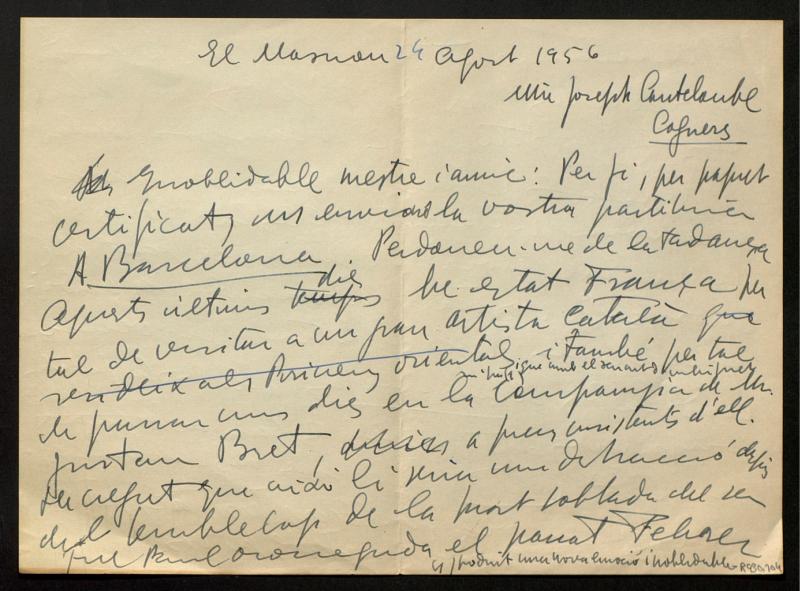 El Masnou 24 Agost 1956
Mr Joseph Canteloube
Cogners
Inoblidable mestre i amic: Per fi, per paquet
certificat, us envio la vostra partitura
A Barcelona Perdoneu-me de la tardança
Aquests últims dies he estat França per
tal de visitar a un gran artista català que
resideix als Pirineus orientals i també per tal
de passar uns dies en la companyia de Mr.
Gustau Bret, a precs insistents d'ell.
He cregut que això li seria una distracció després
del terrible cop de la mort sobtada del seu
fill Paul ocorreguda el passat Febrer
produit una nova emoció inoblidable R930.704